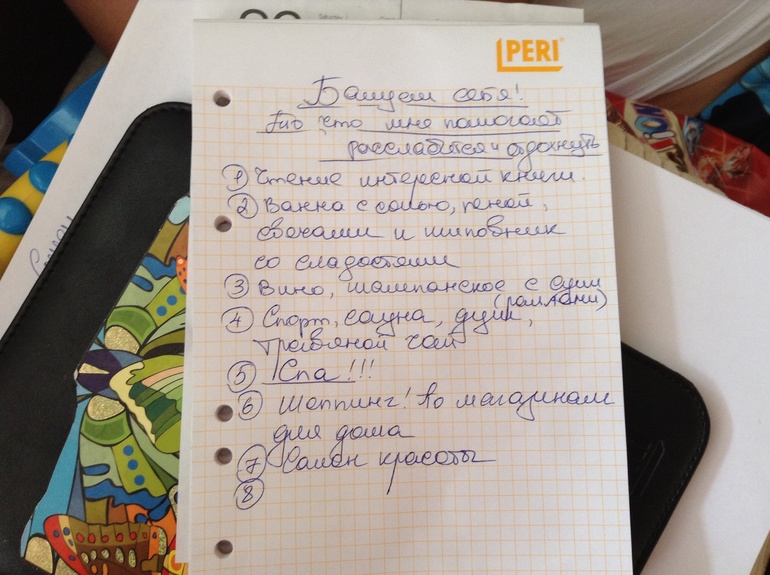 PERI
Балуем себя!
что мне помогает
расслабиться и отдохнуть
1 Чтение интересной книги.
2 Ванна с солью, пеной,
свечами и шиповник
со сладостями
3 Вино, шампанское с
4 Спорт, сауна, душ,
травяной чай
5 Спа!!!
6 Шоппинг! По магазинам
для дома
7 Салон красоты
8